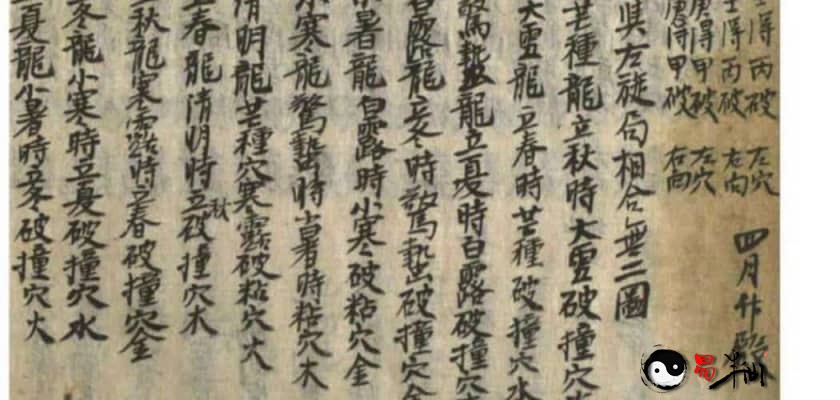 得丙破 左穴
四月作
得丙破 右向
庚得甲破 左穴
庚得甲破 右向
與左旋局相合無二圖
芒種龍立秋時大雪破撞穴
大雪龍立春時芒種破撞穴水
驚蟄龍立夏時白露破撞穴
白露龍立冬時驚蟄破撞穴金
暑龍白露時小寒破粘穴金
小寒龍驚蟄時小暑時粘穴木
清明龍芒種穴寒露破粘穴火
立春龍清明時立秋破撞穴木
立秋龍寒露時立春破撞穴金
立冬龍小寒時立夏破撞穴水
立夏龍小暑時立冬破撞穴火
易